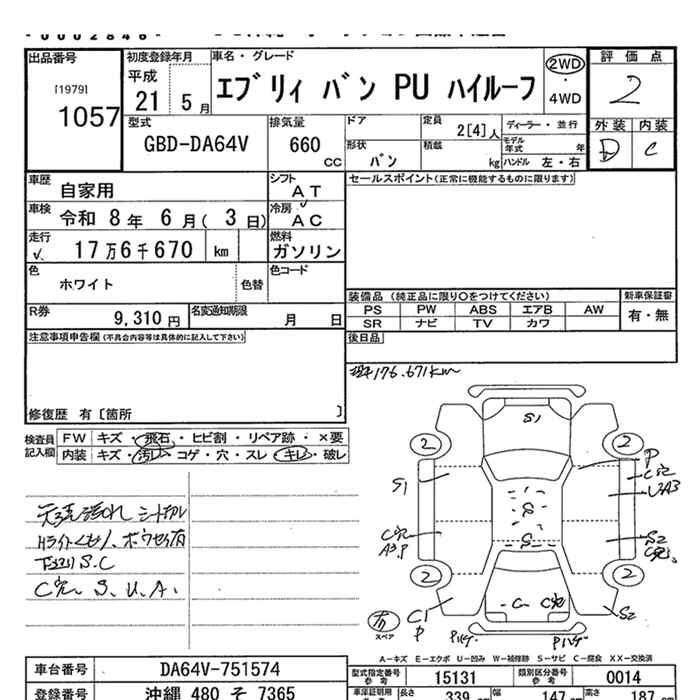 出品番号
[1979]
1057
初度登録年月
平成
21 5月
車名・グレード
エブリィ バン PU ハイルーフ
2WD
・
4WD
評価点
2
外装 内装
D C
型式
GBD-DA64V
排気量
660
CC
ドア
定員
2[4]人
ディーラー・並行
モデル年式 年
形状
バン
積載
kg
ハンドル 左・右
車歴
自家用
シフト
AT
セールスポイント(正常に機能するものに限ります)
車検
令和 8年 6月( 3日)
冷房
AC
走行
17万6千670 km
燃料
ガソリン
色
ホワイト
色替
色コード
装備品 (純正品に限り○をつけてください)
新車保証書
PS PW ABS エアB AW
有・無
SR ナビ TV カワ
R券
9,310円
名変通知期限
月 日
後日品
注意事項申告欄(不具合内容等は具体的に記入して下さい)
176.671km
修復歴 有〔箇所 〕
検査員
記入欄
FW キズ・飛石・ヒビ割・リペア跡・×要
内装 キズ・汚レ・コゲ・穴・スレ・キレ・破レ
S1
2 2
P
S1
S
S
S2
A3.P
2 2
C
C1
P
S2
スペア
S.C
S、U、A.
A-キズ E-エクボ U-凹み W-補修跡 S-サビ C-腐食 XX-交換済
車台番号
DA64V-751574
型式指定番号
参考
15131
類別区分番号
参考
0014
登録番号
沖縄 480 そ 7365
車庫証明用
長さ
339 cm
幅
147 cm
高さ
187 cm